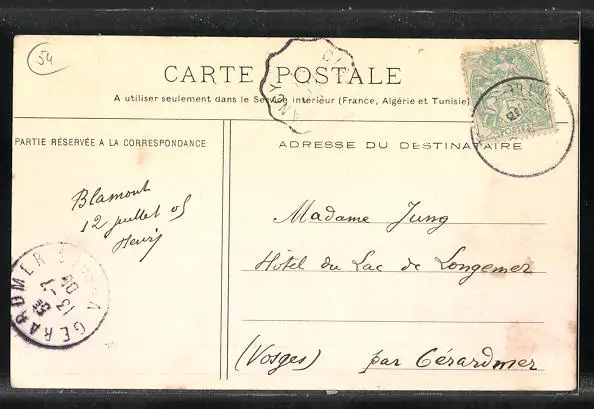 54
CARTE POSTALE
A utiliser seulement dans le Service intérieur (France, Algérie et Tunisie)
PARTIE RÉSERVÉE A LA CORRESPONDANCE
ADRESSE DU DESTINATAIRE
Blamont
12 juillet 05
Henri
Madame Jung
Hôtel du Lac de Longemer
(Vosges) par Gérardmer
POSTES
GERARDMER
13 -7